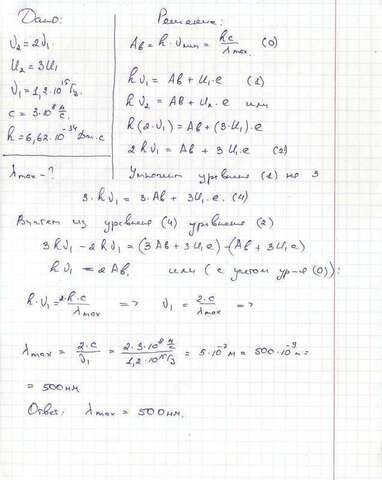 Дано:
ν₂ = 2ν₁
U₂ = 3U₁
ν₁ = 1,2·10¹⁵ Гц
c = 3·10⁸ м/с
h = 6,62·10⁻³⁴ Дж·с
λmax - ?
Решение:
Aв = h·νmin = hc/λmax (0)
hν₁ = Aв + U₁·e (1)
hν₂ = Aв + U₂·e или
h(2·ν₁) = Aв + (3·U₁)·e
2hν₁ = Aв + 3U₁e (2)
Умножим уравнение (1) на 3
3·hν₁ = 3·Aв + 3U₁e. (4)
Вычтем из уровнения (4) уровнение (2)
3hν₁ - 2hν₁ = (3Aв + 3U₁e) - (Aв + 3U₁e)
hν₁ = 2Aв, или (с учетом ур-я (0)):
h·ν₁ = 2·h·c/λmax => ν₁ = 2·c/λmax =>
λmax = 2·c/ν₁ = 2·3·10⁸ м/с / 1,2·10¹⁵ Гц = 5·10⁻⁷ м = 500·10⁻⁹ м =
= 500 нм
Ответ: λmax = 500 нм.